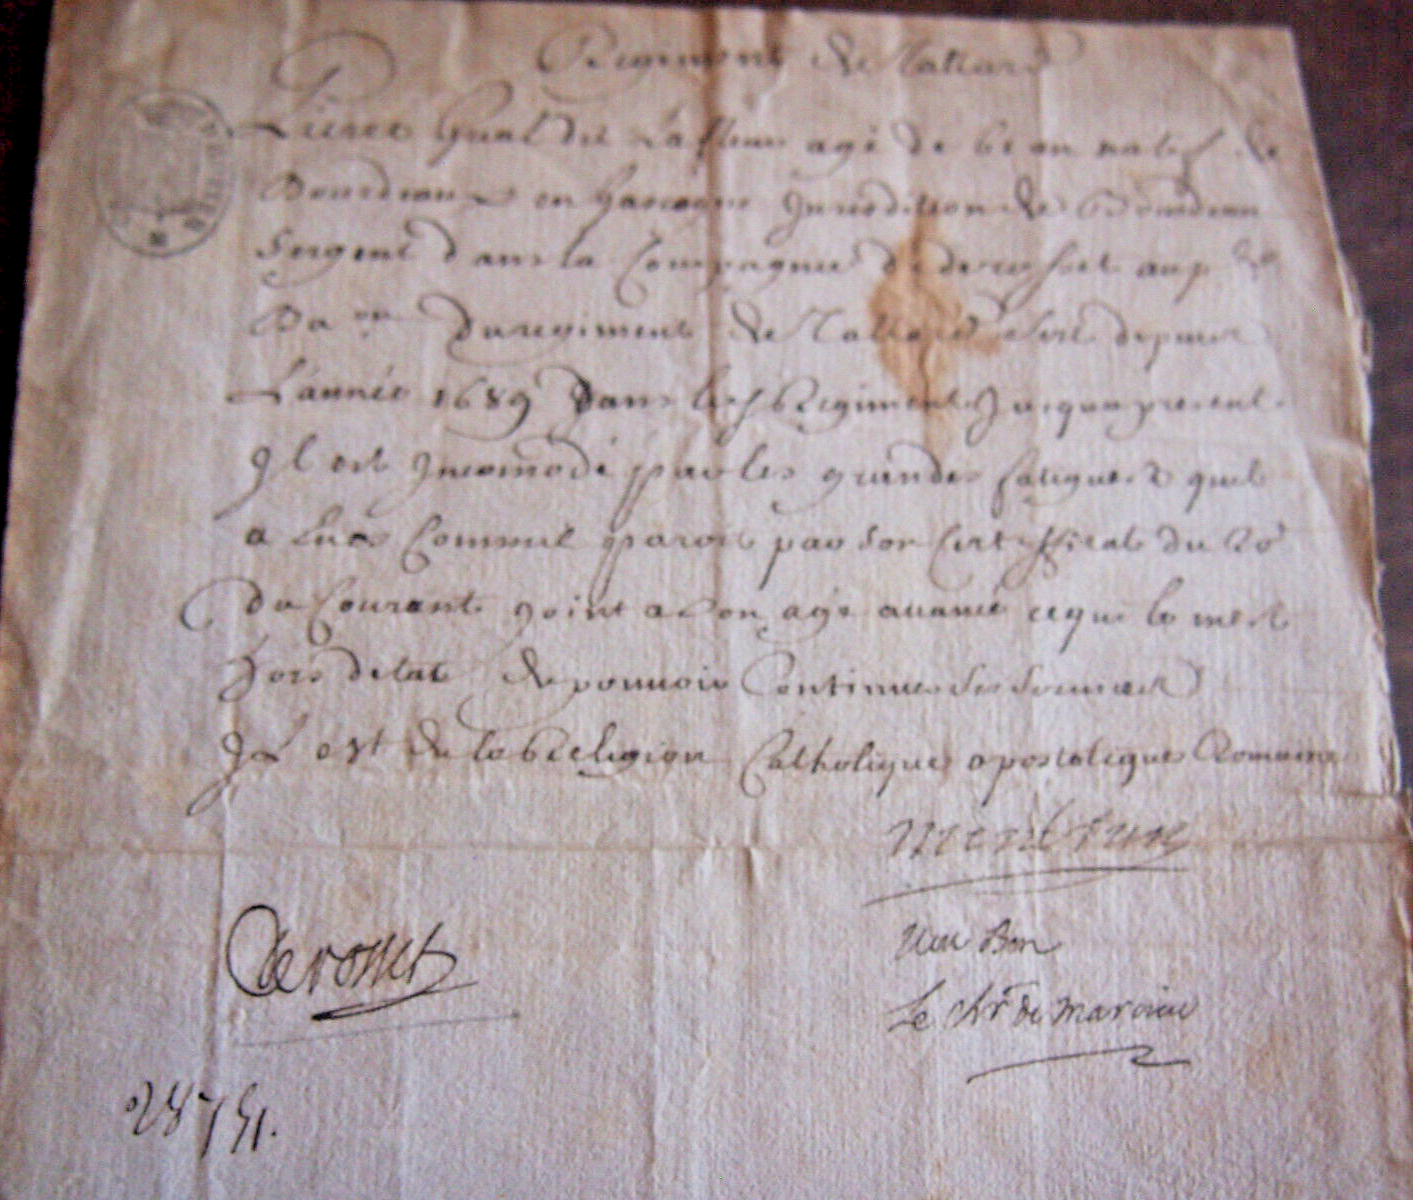 Regiment de Tallard
Pierre dit Lafleur agé de 61 an natif de
Bourdeaux en gascogne Jurisdition de Bourdeaux
Sergent dans la Compagnie
Ba.on du regiment de Tallard sert depuis
L'année 1689 dans le Regiment Jusqua present
Jl est Jncomodé par les grandes fatigues quil
a Comme il paroit par son Certifficat du 20
du Courant joint a son age auancé ce qui le met
hors detat de pouuoir Continuer ses seruices
Jl est de la Religion Catholique apostolique Romaine
Derosset
Veu Bon
Le chr de marcieu